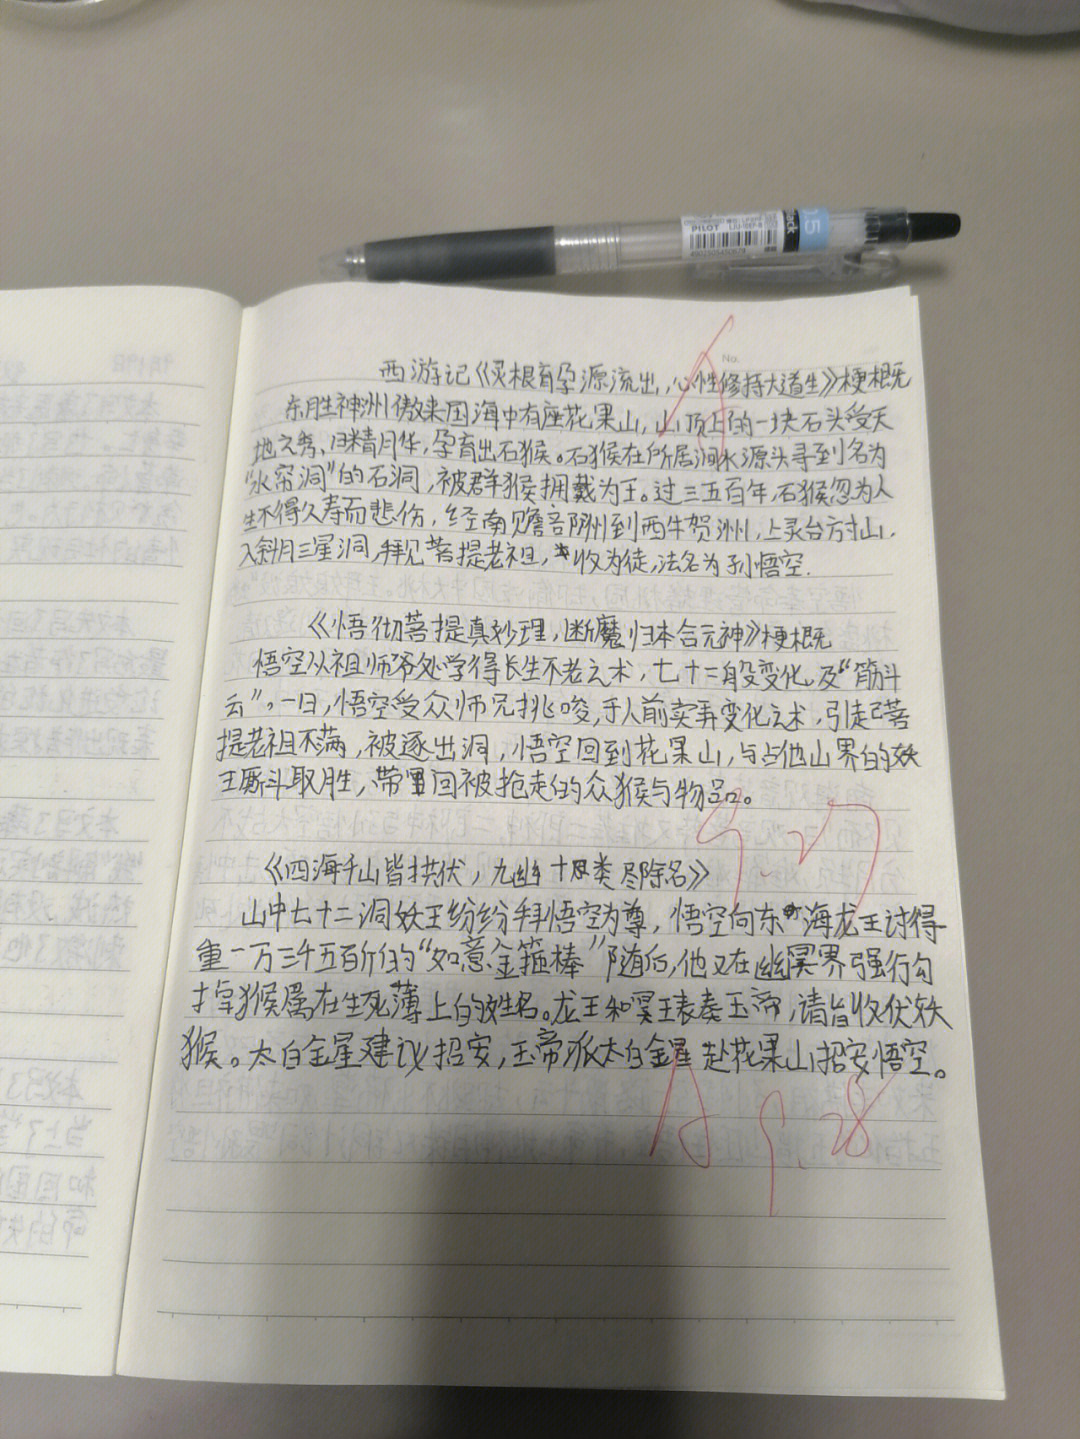 0.5
PILOT
No.
西游记《灵根育孕源流出,心性修持大道生》梗概
东胜神洲傲来国海中有座花果山,山顶上的一块石头受天
地之秀、日精月华,孕育出石猴。石猴在所居涧水源头寻到名为
“水帘洞”的石洞,被群猴拥戴为王。过三五百年,石猴忽为人
生不得久寿而悲伤,经南赡部洲到西牛贺洲,上灵台方寸山,
入斜月三星洞,拜见菩提老祖,收为徒,法名为孙悟空.
《悟彻菩提真妙理,断魔归本合元神》梗概
悟空从祖师爷处学得长生不老之术,七十二般变化及“筋斗
云”。一日,悟空受众师兄挑唆,于人前卖弄变化之术,引起菩
提老祖不满,被逐出洞,悟空回到花果山,与占他山界的妖
王厮斗取胜,带回被抢走的众猴与物品。
9.27
《四海千山皆拱伏,九幽十类尽除名》
山中七十二洞妖王纷纷拜悟空为尊,悟空向东海龙王讨得
重一万三千五百斤的“如意金箍棒”随后,他又在幽冥界强行勾
掉猴属在生死薄上的姓名。龙王和冥王表奏玉帝,请旨收伏妖
猴。太白金星建议招安,玉帝派太白金星赴花果山招安悟空。
A 9.28